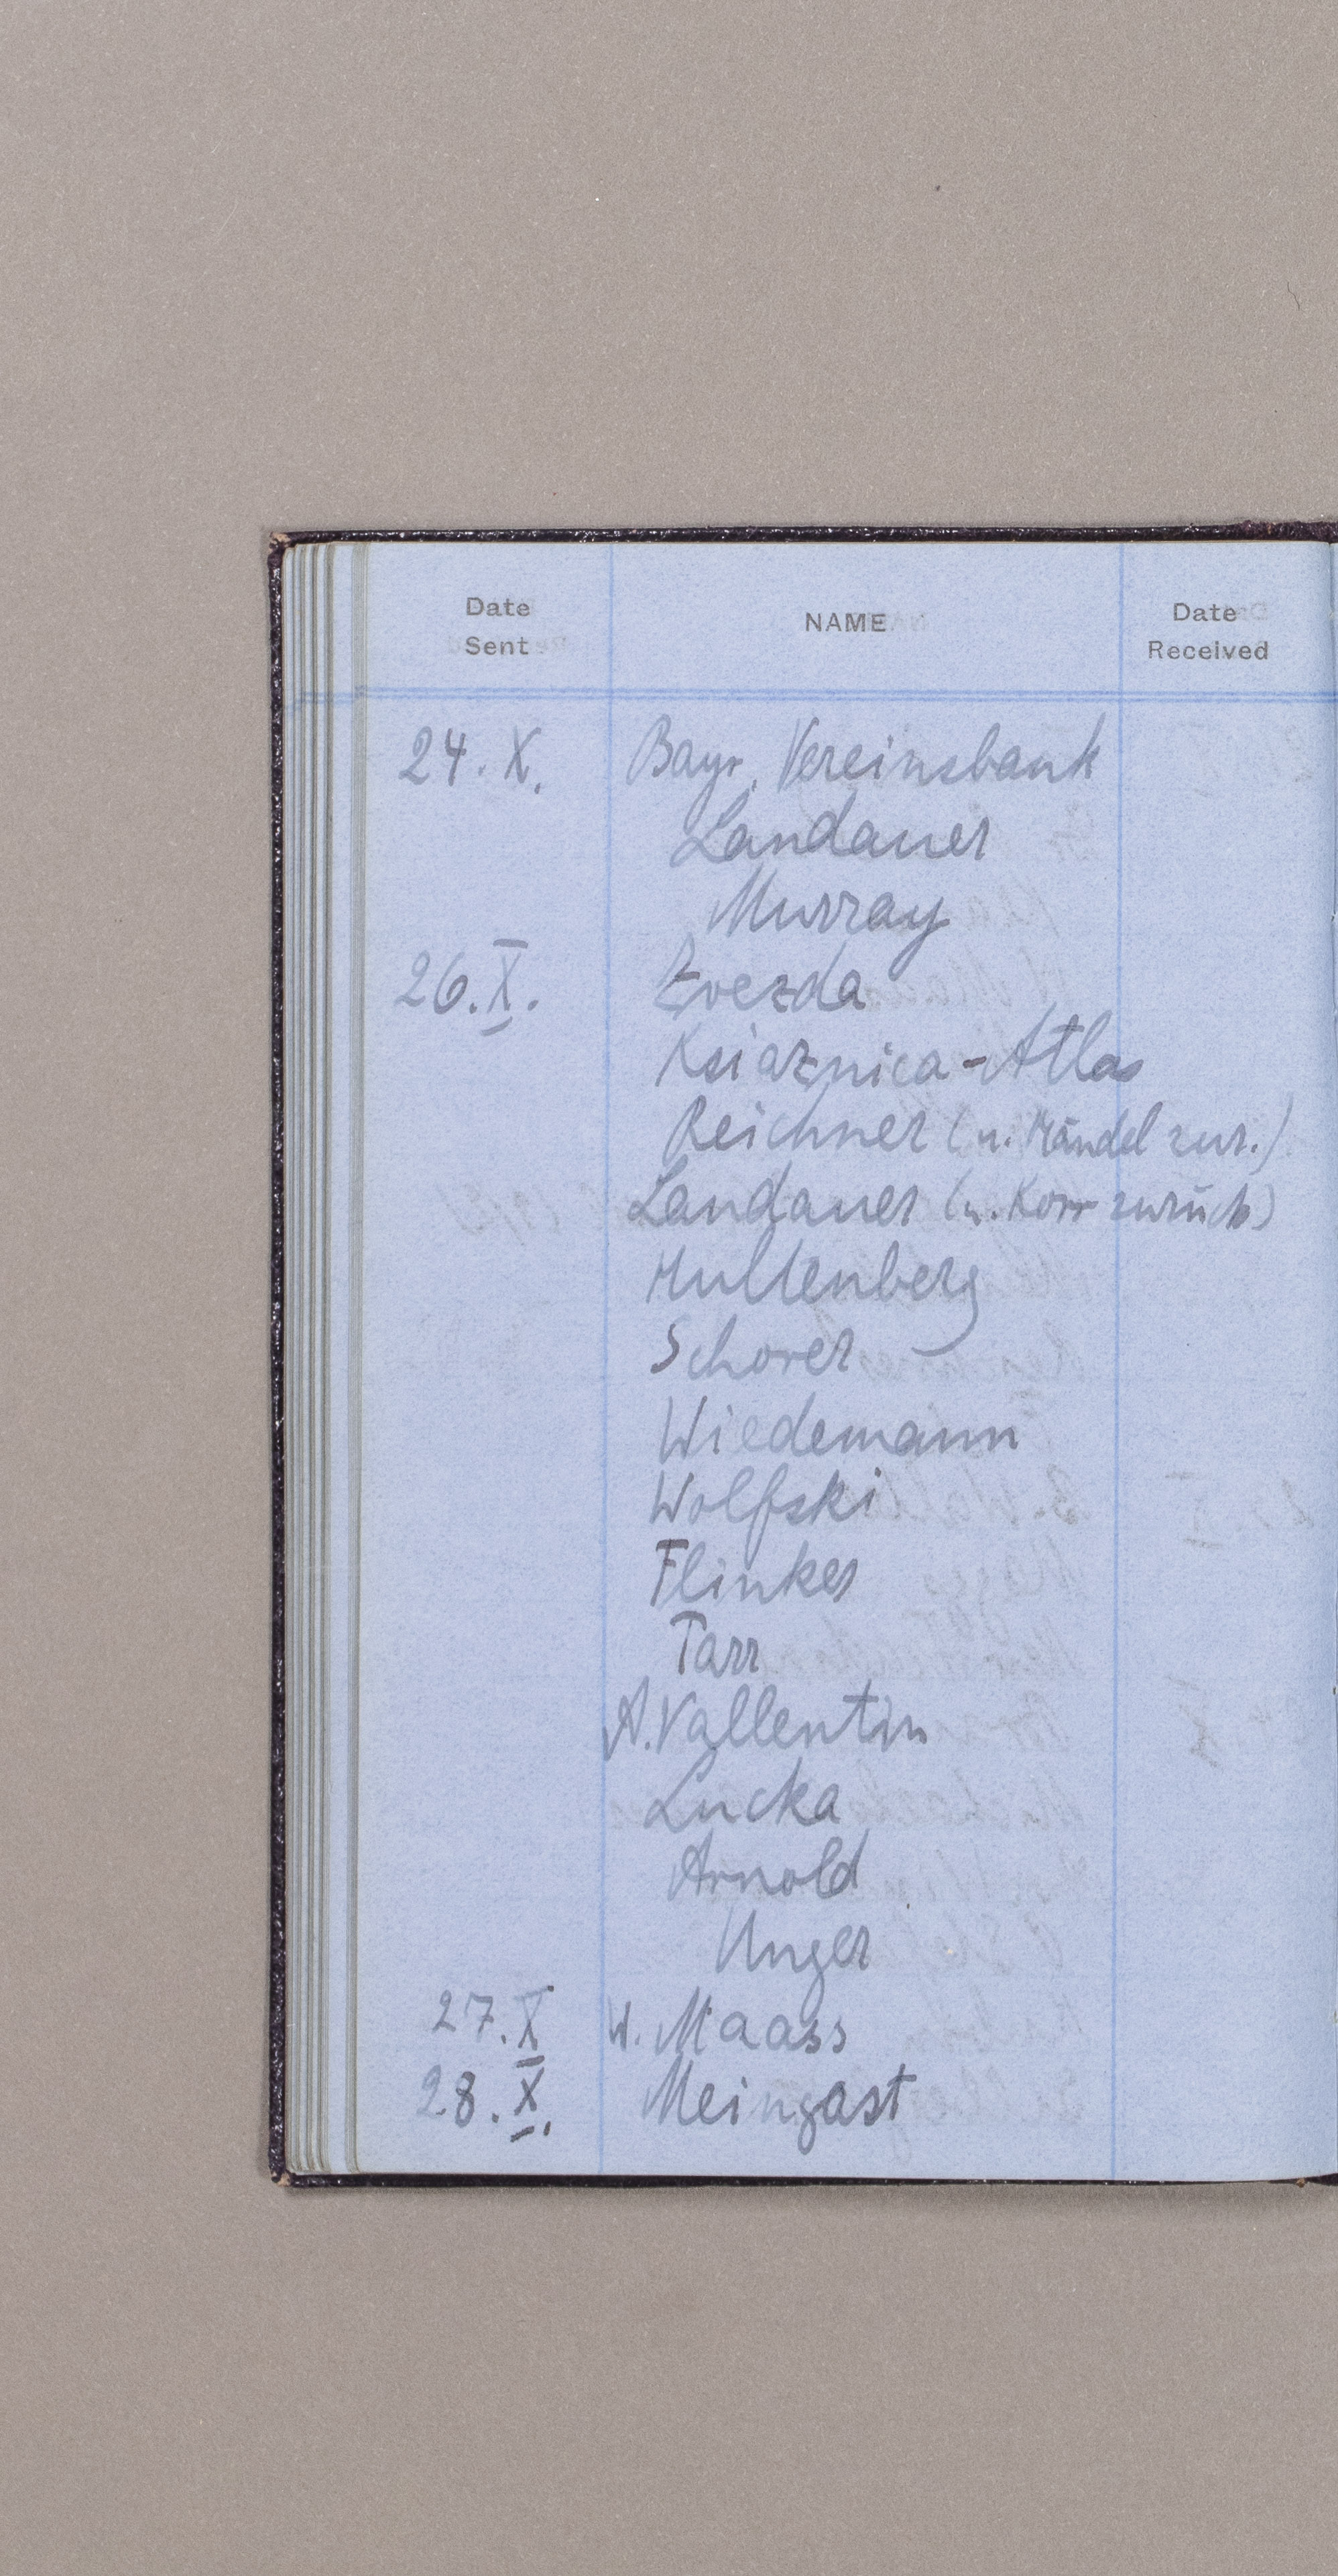 Date Sent NAME Date Received
24. X. Bayr. Vereinsbank
Landauer
Murray
26. X. Zvezda
Ksiaznica-Atlas
Reichner (u. Händel zur.)
Landauer (u. Korr zurück)
Hultenberg
Schorer
Wiedemann
Wolfski
Flinker
Tarr
A. Vallentin
Lucka
Arnold
Unger
27. X W. Maass
28. X. Meingast